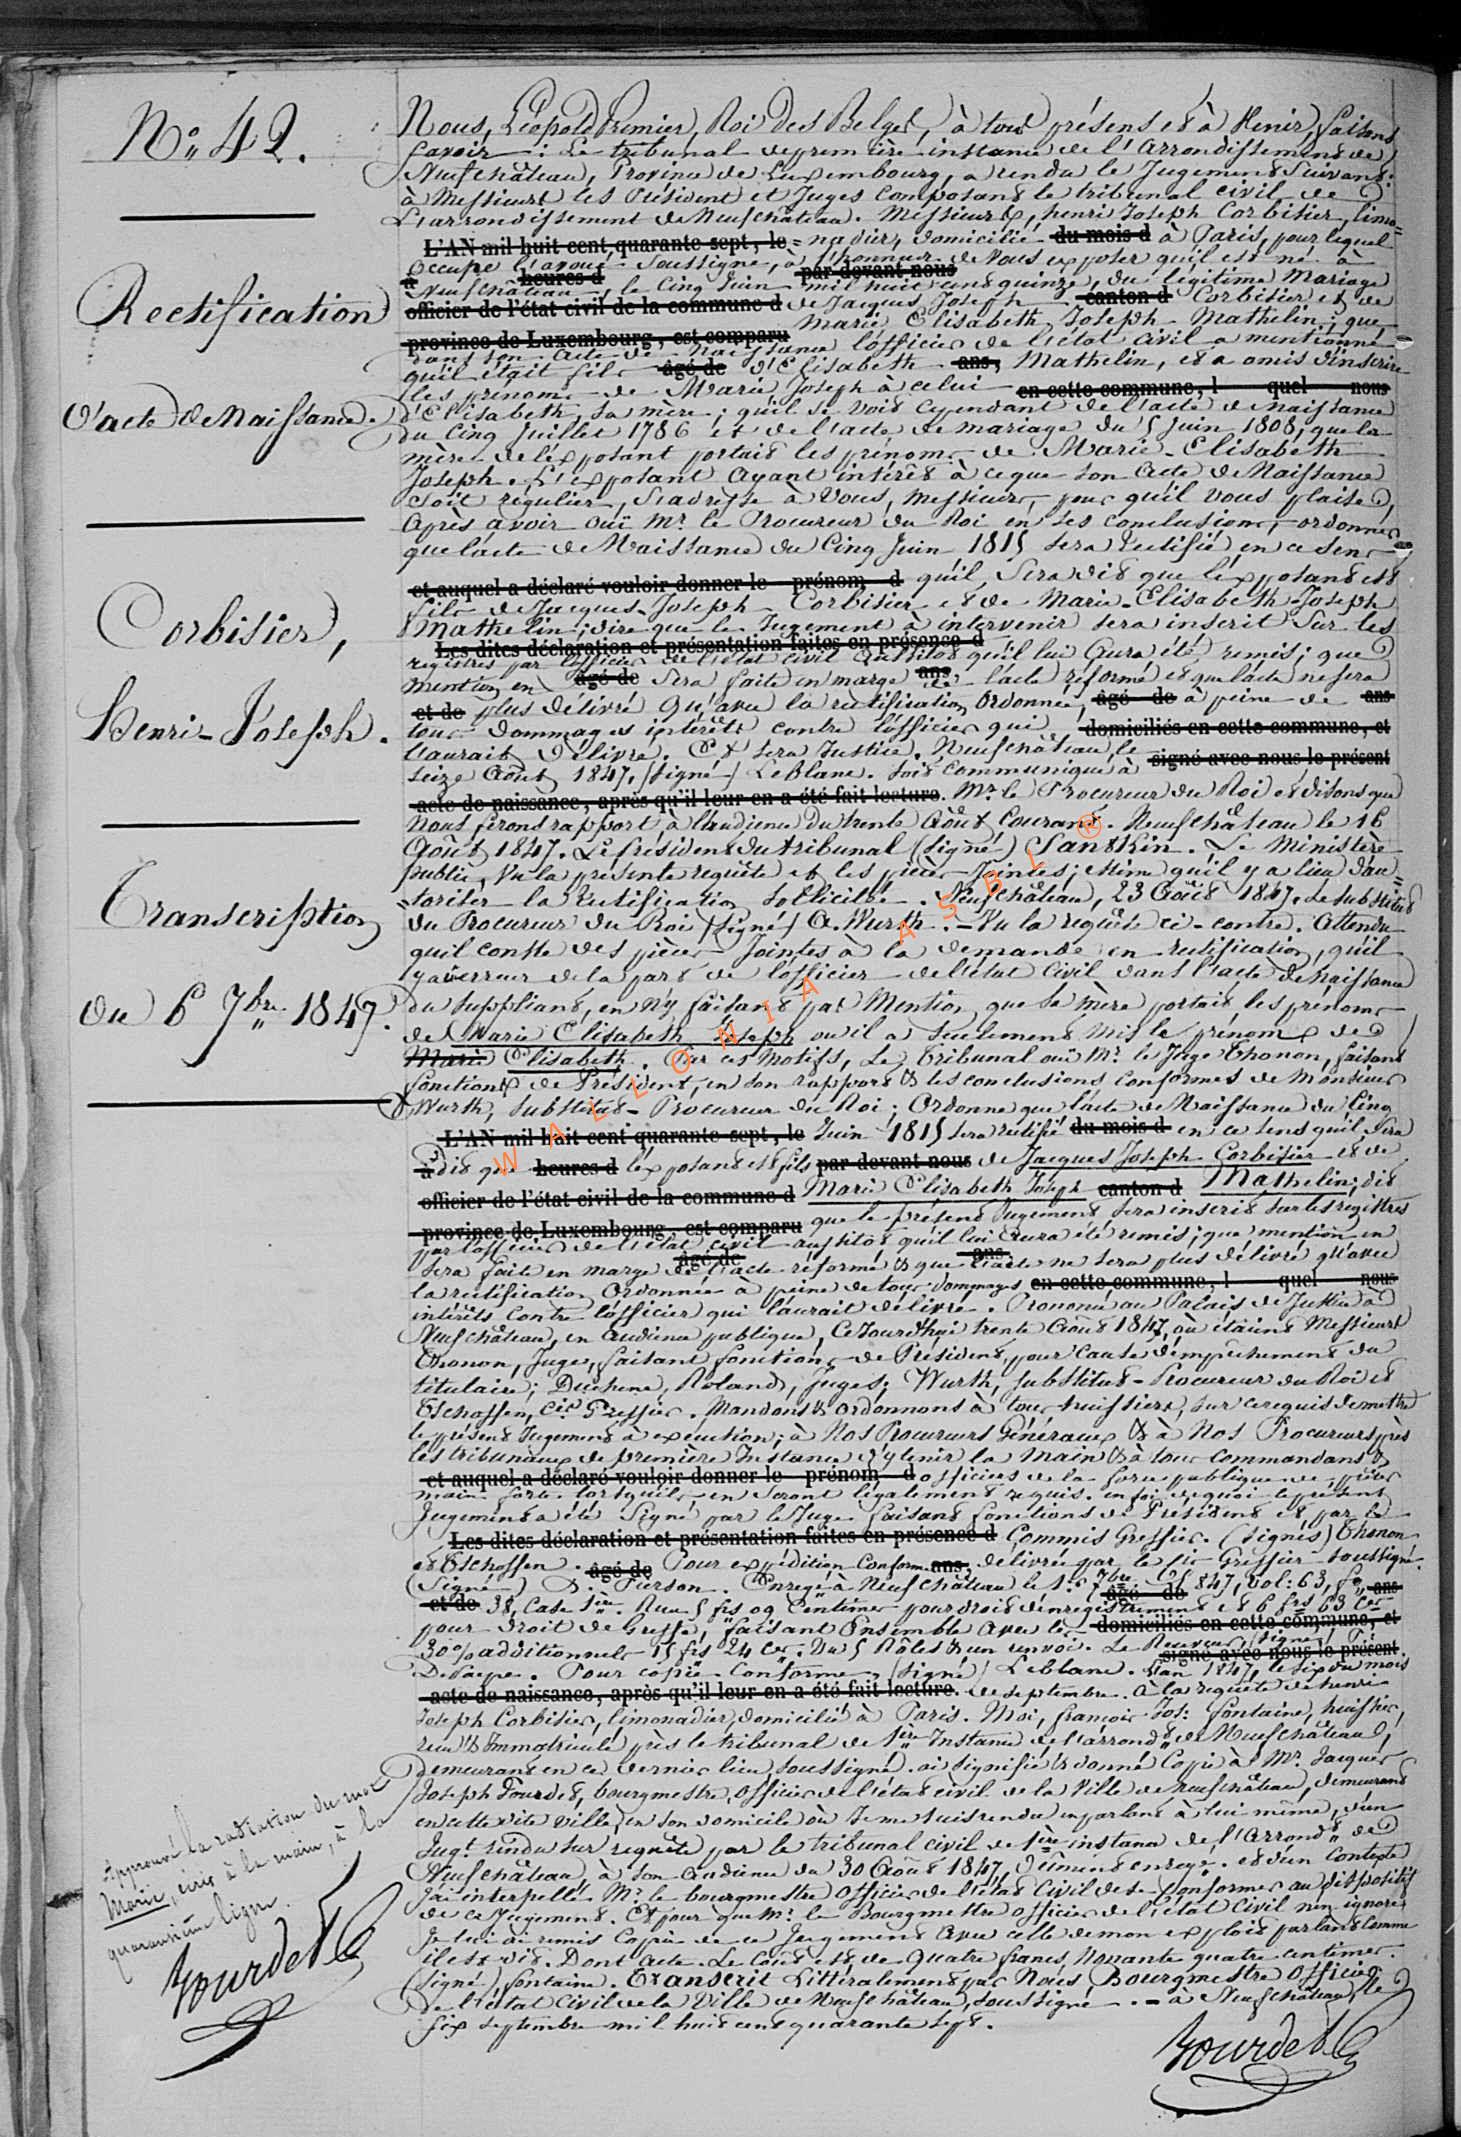 N° 42.
Rectification
d'acte de Naissance.
Corbisier,
Henri-Joseph.
Transcription
du 6 7bre 1847.
Nous, Léopold Premier, Roi des Belges, à tous présens et à venir, faisons
savoir : Le tribunal de première instance de l'arrondissement de
Neufchâteau, Province de Luxembourg, a rendu le Jugement suivant:
à Messieurs les Président et Juges composant le tribunal civil de
L'arrondissement de Neufchâteau. Messieurs, henri Joseph Corbisier, limo-
L'AN mil huit cent quarante-sept, le = nadier, domicilié du mois d à Paris, pour lequel
occupe l'avoué soussigné, à l'honneur de vous exposer qu'il est né à
à heures d par-devant nous
Neufchâteau, le cinq Juin mil huit cent quinze, du légitime Mariage
officier de l'état civil de la commune d de Jacques Joseph canton d Corbisier et de
province de Luxembourg, est comparu Marie Elisabeth Joseph Mathelin; que
dans son acte de naissance l'officier de l'état civil a mentionné
qu'il était fils âgé de d'Elisabeth ans, Mathelin, et a omis d'inscrire
les prénoms de Marie Joseph à celui en cette commune, l quel nous
d'Elisabeth, sa mère; qu'il se voit cependant de l'acte de naissance
du Cinq Juillet 1786 et de l'acte de mariage du 5 Juin 1808, que la
mère de l'exposant portait les prénoms de Marie-Elisabeth
Joseph. L'exposant ayant intérêt à ce que son acte de Naissance
soit régulier, s'adresse à vous, Messieurs, pour qu'il vous plaise,
Après avoir ouï Mr. le Procureur du Roi en ses conclusions, ordonner
que l'acte de Naissance du Cinq Juin 1815 sera rectifié en ce sens
et auquel a déclaré vouloir donner le prénom d qu'il sera dit que l'exposant est
fils de Jacques-Joseph Corbisier et de Marie-Elisabeth-Joseph
Mathelin; dire que le Jugement à intervenir sera inscrit sur les
Les dites déclaration et présentation faites en présence d
registres par l'officier de l'état civil aussitôt qu'il lui aura été remis; que
mention en âgé de sera faite en marge ans de l'acte réformé et que l'acte ne sera
et de plus délivré qu'avec la rectification ordonnée, âgé de à peine de ans
tous dommages intérêts contre l'officier qui domiciliés en cette commune, et
l'aurait délivré. Et sera Justice. Neufchâteau, le signé avec nous le présent
seize Août 1847. (Signé) Leblanc. Soit communiqué à
acte de naissance, après qu'il leur en a été fait lecture. Mr. le Procureur du Roi et disons que
nous ferons rapport à l'audience du trente Août courant. Neufchâteau le 16
Août 1847. Le président du tribunal (Signé) . Le Ministère
public, Vu la présente requête et les pièces jointes; estime qu'il y a lieu d'au-
=toriser la rectification sollicitée. Neufchâteau, 23 Août 1847. Le substitut
du Procureur du Roi (Signé) A. Wurth. - Vu la requête ci-contre. Attendu
qu'il conste des pièces jointes à la demande en rectification, qu'il
y a erreur de la part de l'officier de l'état civil dans l'acte de naissance
du suppliant, en n'y faisant pas mention que sa mère portait les prénoms
de Marie Elisabeth Joseph où il a seulement mis le prénom de
Marie Elisabeth. Par ces motifs, Le tribunal ouï Mr. le Juge Thonon, faisant
fonctions de Président, en son rapport et les conclusions conformes de Monsieur
Wurth, substitut-Procureur du Roi; Ordonne que l'acte de Naissance du Cinq
L'AN mil huit cent quarante-sept, le Juin 1815 sera rectifié du mois d en ce sens qu'il sera
à dit que heures d l'exposant est fils par-devant nous de Jacques Joseph Corbisier et de
officier de l'état civil de la commune d Marie Elisabeth Joseph canton d Mathelin; dit
province de Luxembourg, est comparu que le présent Jugement sera inscrit sur les registres
par l'officier de l'état civil aussitôt qu'il lui aura été remis; que mention en
âgé de ans
sera faite en marge de l'acte réformé et que l'acte ne sera plus délivré qu'avec
la rectification ordonnée à peine de tous dommages en cette commune, l quel nous
intérêts contre l'officier qui l'aurait délivré. Prononcé au Palais de Justice à
Neufchâteau, en audience publique, Cejourd'hui trente Août 1847, où étaient Messieurs
Thonon, Juge, faisant fonctions de Président, pour cause d'empêchement du
titulaire; Duchene, Roland, Juges; Wurth, substitut-Procureur du Roi et
Tschoffen, Cis Greffier. Mandons et ordonnons à tous huissiers, sur ce requis de mettre
le présent Jugement à exécution; à Nos Procureurs Généraux et à Nos Procureurs près
les tribunaux de première Instance d'y tenir la main et à tous commandans et
et auquel a déclaré vouloir donner le prénom d officiers de la force publique de prêter
main forte lorsqu'ils en seront légalement requis. en foi de quoi le présent
Jugement a été signé par le Juge faisant fonctions de Président et par le
Les dites déclaration et présentation faites en présence d Commis Greffier. (Signés) Thonon
et Tschoffen. âgé de Pour expédition conforme ans, délivrée par le Greffier soussigné.
(Signé) D. Pierson. Enregé à Neufchâteau le 1er 7bre 1847, vol: 63, f° ans
et de 38, Case 1ère. Reçu 5 frs 09 Centimes pour droit d'enregistrement et 6 frs 63 Ces
pour droit de Greffe, faisant Ensemble avec les domiciliés en cette commune, et
30% additionnels 15 frs 24 ces. Vu 5 Rôles et un renvoi. Le Receveur (Signé)
signé avec nous le présent
Depaepe. Pour copie conforme, (Signé) Leblanc. L'an 1847, le six du mois
acte de naissance, après qu'il leur en a été fait lecture. de septembre. à la requête de henri
Joseph Corbisier, limonadier, domicilié à Paris. Moi, françois Jos: fontaine, huissier,
reçu et immatriculé près le tribunal de 1ère Instance de l'arrondt de Neufchâteau,
demeurant en ce dernier lieu, soussigné. ai signifié et donné Copie à Mr. Jacques
Joseph Tourdet, bourgmestre, officier de l'état civil de la Ville de neufchâteau, demeurant
en cette dite ville, en son domicile où je me suis rendu en parlant à lui même, d'un
Jugt. rendu sur requête par le tribunal civil de 1ère instance de l'arrondt de
Neufchâteau, à son audience du 30 Août 1847, dûment enregé. et d'un contexte
j'ai interpellé Mr. le bourgmestre officier de l'état civil de se conformer au dispositif
de ce Jugement. Et pour que Mr. le Bourgmestre officier de l'état civil n'en ignore
je lui ai remis copie de ce Jugement avec celle de mon exploit parlant comme
il est dit. Dont acte. Le coût est de quatre francs, nonante quatre centimes.
(Signé) fontaine. Transcrit Littéralement par Nous Bourgmestre officier
de l'état Civil de la Ville de Neufchâteau, soussigné. - à Neufchâteau, le
six septembre mil huit cent quarante sept.
Tourdet
Approuvé la radiation du mot
Marie, écrit à la main, à la
quarantième ligne.
Tourdet
WALLONIA ASBL ®